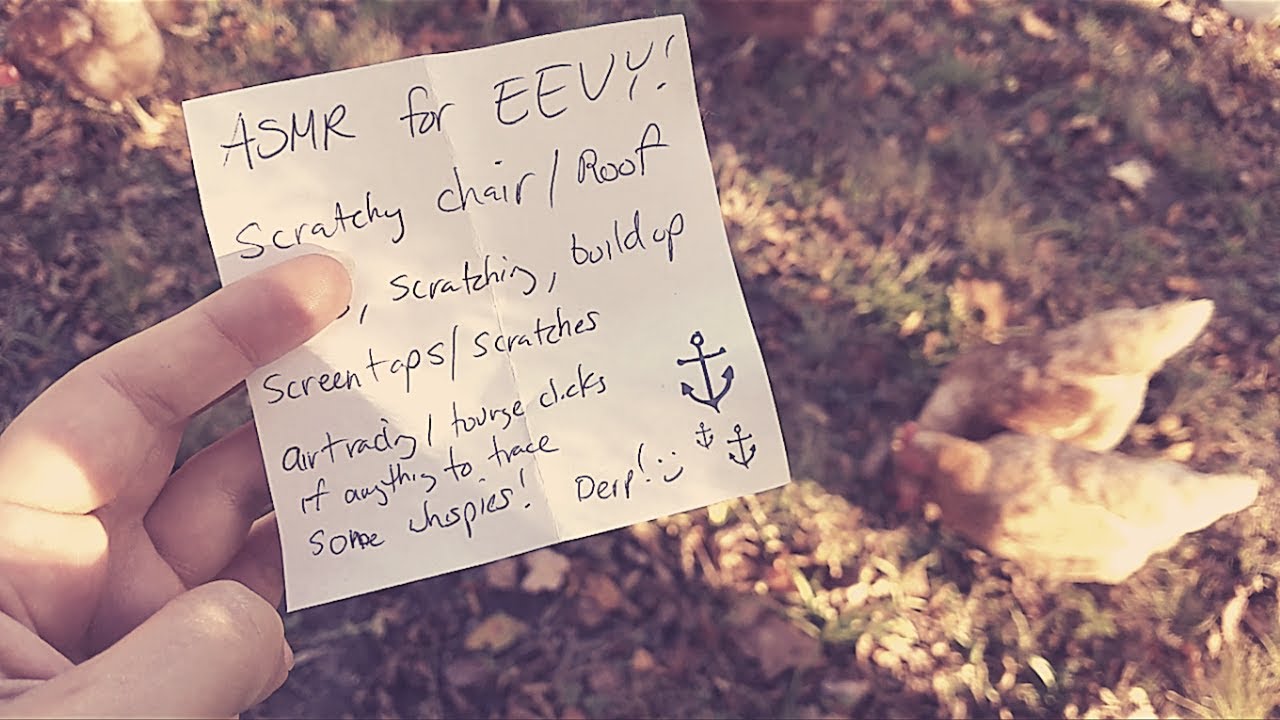 ASMR for EEVY!
Scratchy chair/Roof
, scratching, build up
Screentaps/scratches
airtracing/tounge clicks
if anything to trace
some whispies! Derp! :)